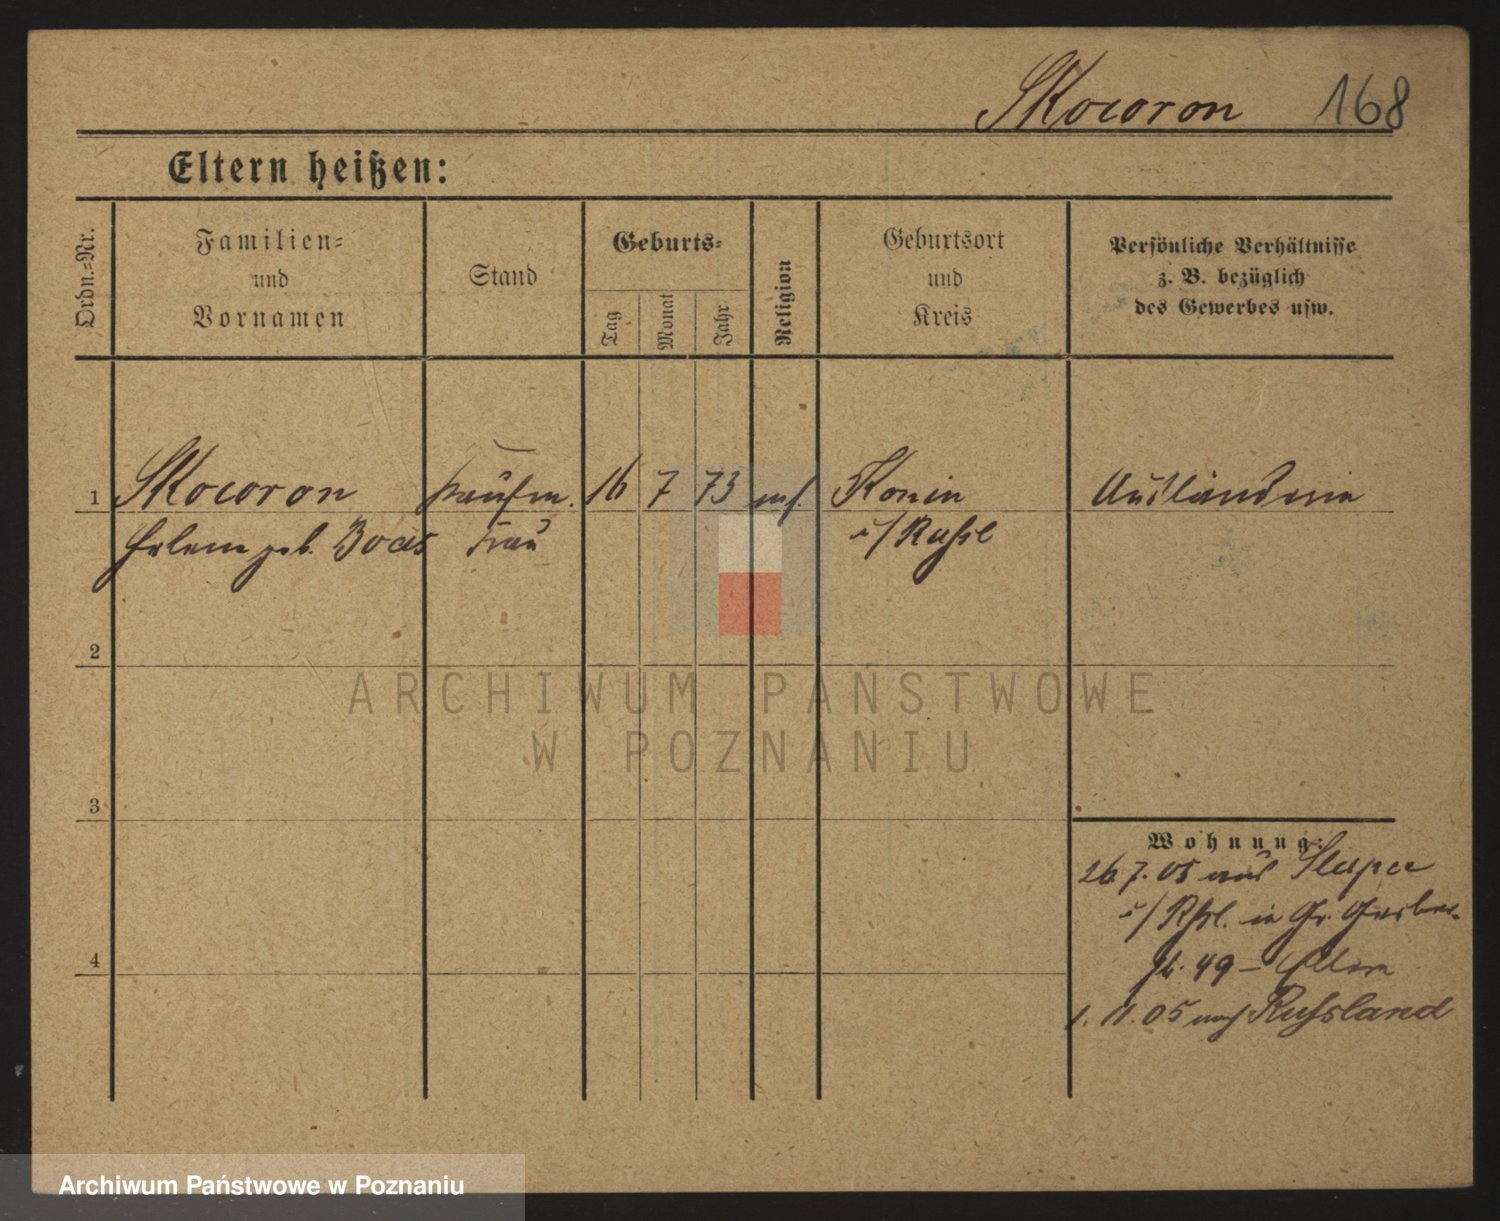 Skocoron 168
Eltern heißen:
Ordn.=Nr.
Familien=
und
Vornamen
Stand
Geburts=
Tag
Monat
Jahr
Religion
Geburtsort
und
Kreis
Persönliche Verhältnisse
z. B. bezüglich
des Gewerbes usw.
1 Skocoron Kaufm. 16 7 73 Konin Ausländerin
geb. Frau i/Russl
2
ARCHIWUM PAŃSTWOWE
W POZNANIU
3
Wohnung:
26.7.05 aus Slupca
i/Rssl. in Gr. Gerber-
str. 49 – Eltern
4
1. 11. 05 nach Russland
Archiwum Państwowe w Poznaniu